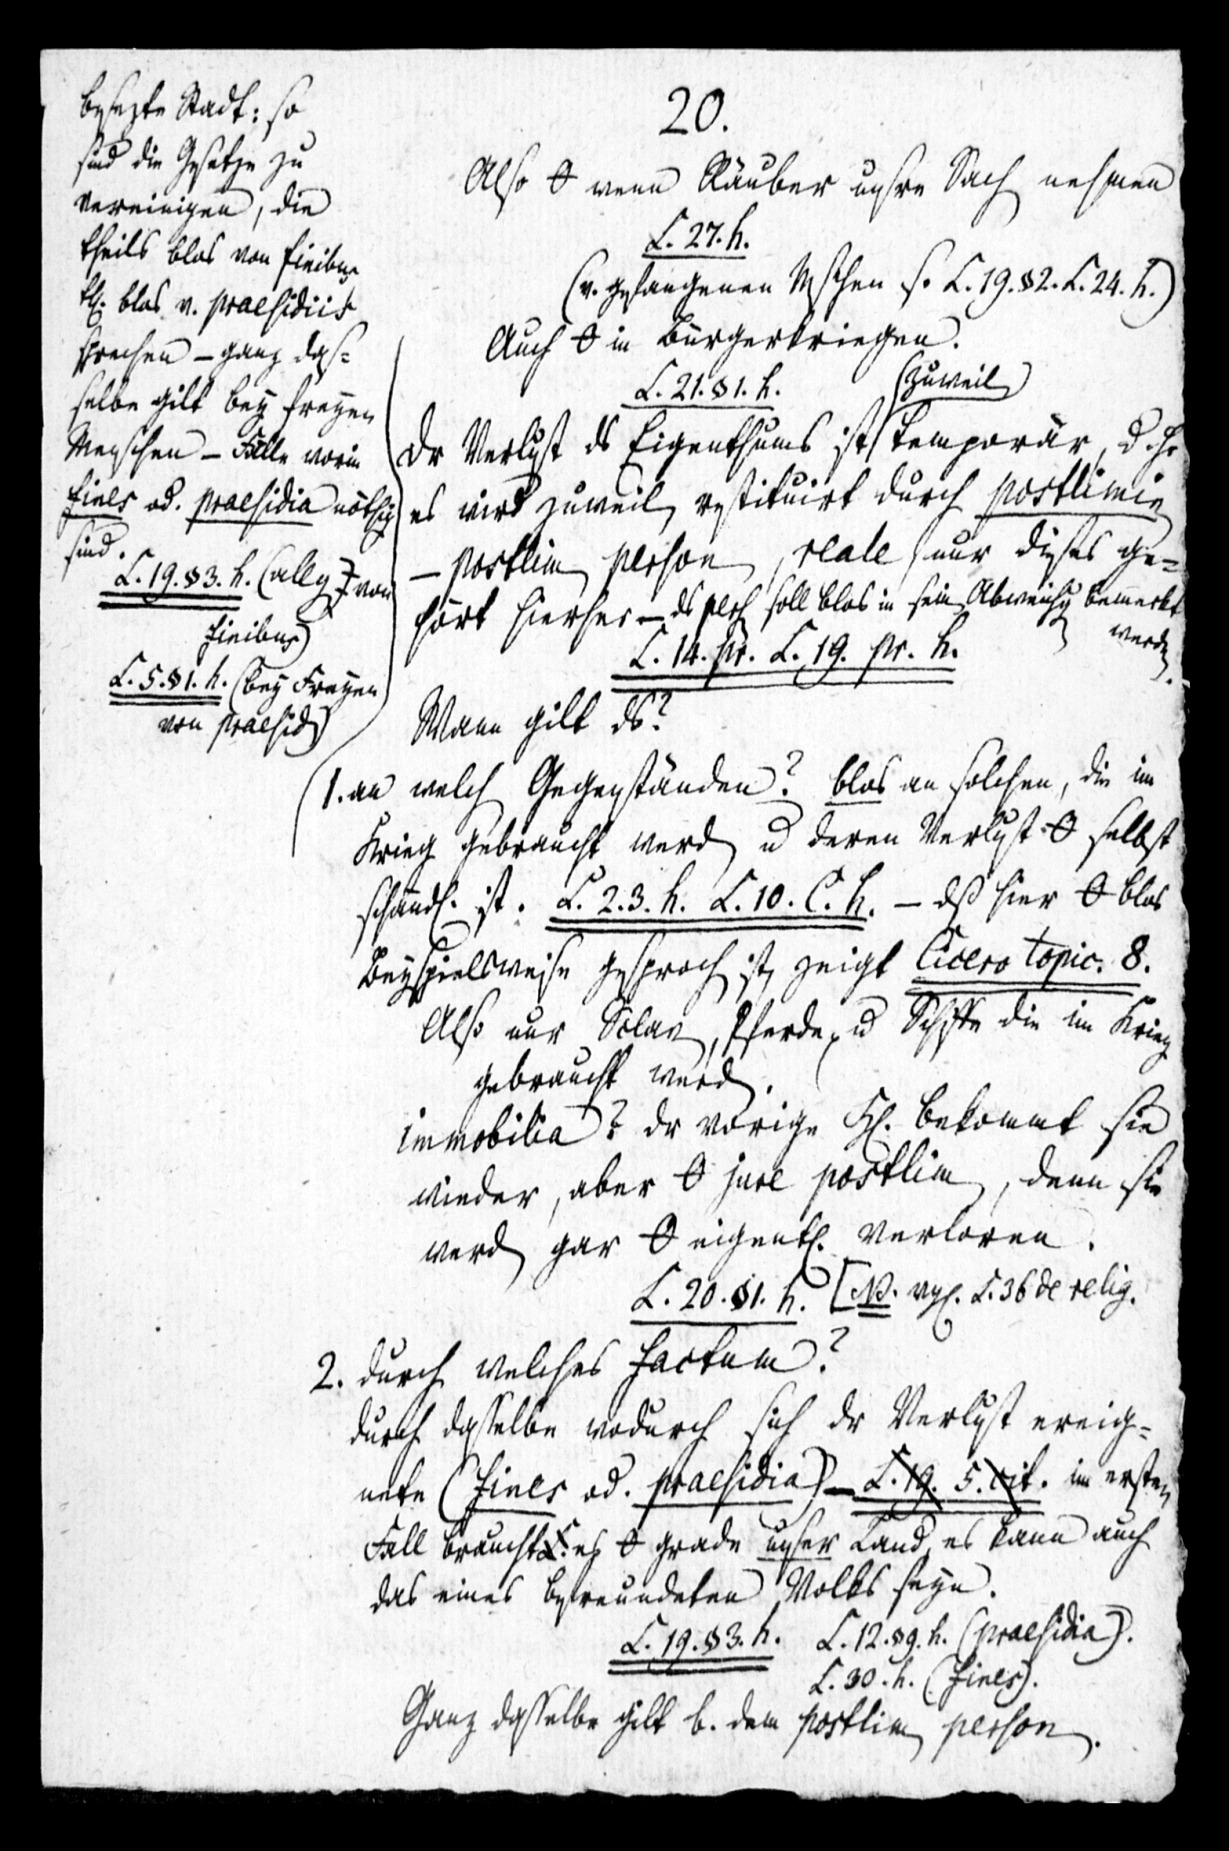 20.
Also θ wenn Räuber unsre Sach nehmen
L. 27. h.
(v. gefangenen Mschen s. L. 19. §2. L. 24. h.)
Auch θ in Bürgerkriegen.
L. 21. §1. h.
(zuweil)
Dr Verlust ds Eigenthums ist temporär, d. h.
es wird zuweil restituirt durch postlimin
– postlim person, reale (nur dieses ge-
hört hierher – ds pers soll blos in sein Abweichg bemerkt
werd.
L. 14. pr. L. 19. pr. h.
Wann gilt ds?
1. an welch Gegenständen? blos an solchen, die im
Krieg gebraucht werd u deren Verlust θ selbst
schändl. ist. L. 2. 3. h. L. 10. C. h. – dß hier θ blos
Beyspielsweise gesproch ist, zeigt Cicero topic. 8.
Also nur Sclav, Pferde, u Schiffe die im Krieg
gebraucht werd.
immobilia? dr vorige Hl. bekommt sie
wieder, aber θ jure postlim, denn sie
werd gar θ eigentl. verloren.
L. 20. §1. h. [NB. vgl. L. 36 de relig.
2. durch welches factum?
durch dasselbe wodurch sich dr Verlust ereig-
nete (fines od. praesidia) – L. 19. 5. cit. im ersten
Fall braucht es θ grade unser Land, es kann auch
das eines befreundeten Volks seyn.
L. 19. §3. h. L. 12. §9. h. (praesidia).
L. 30. h. (fines).
Ganz dasselbe gilt b. dem postlim person.
besezte Stadt: so
sind die Gesetze zu
vereinigen, die
theils blos von finibus
thl. blos v. praesidiis
sprechen – ganz das-
selbe gilt bey freyen
Menschen – Fälle worin
fines od. praesidia nöthig
sind.
L. 19. §3. h. (allg von
finibus)
L. 5. §1. h. (bey Freyen
von praesid)